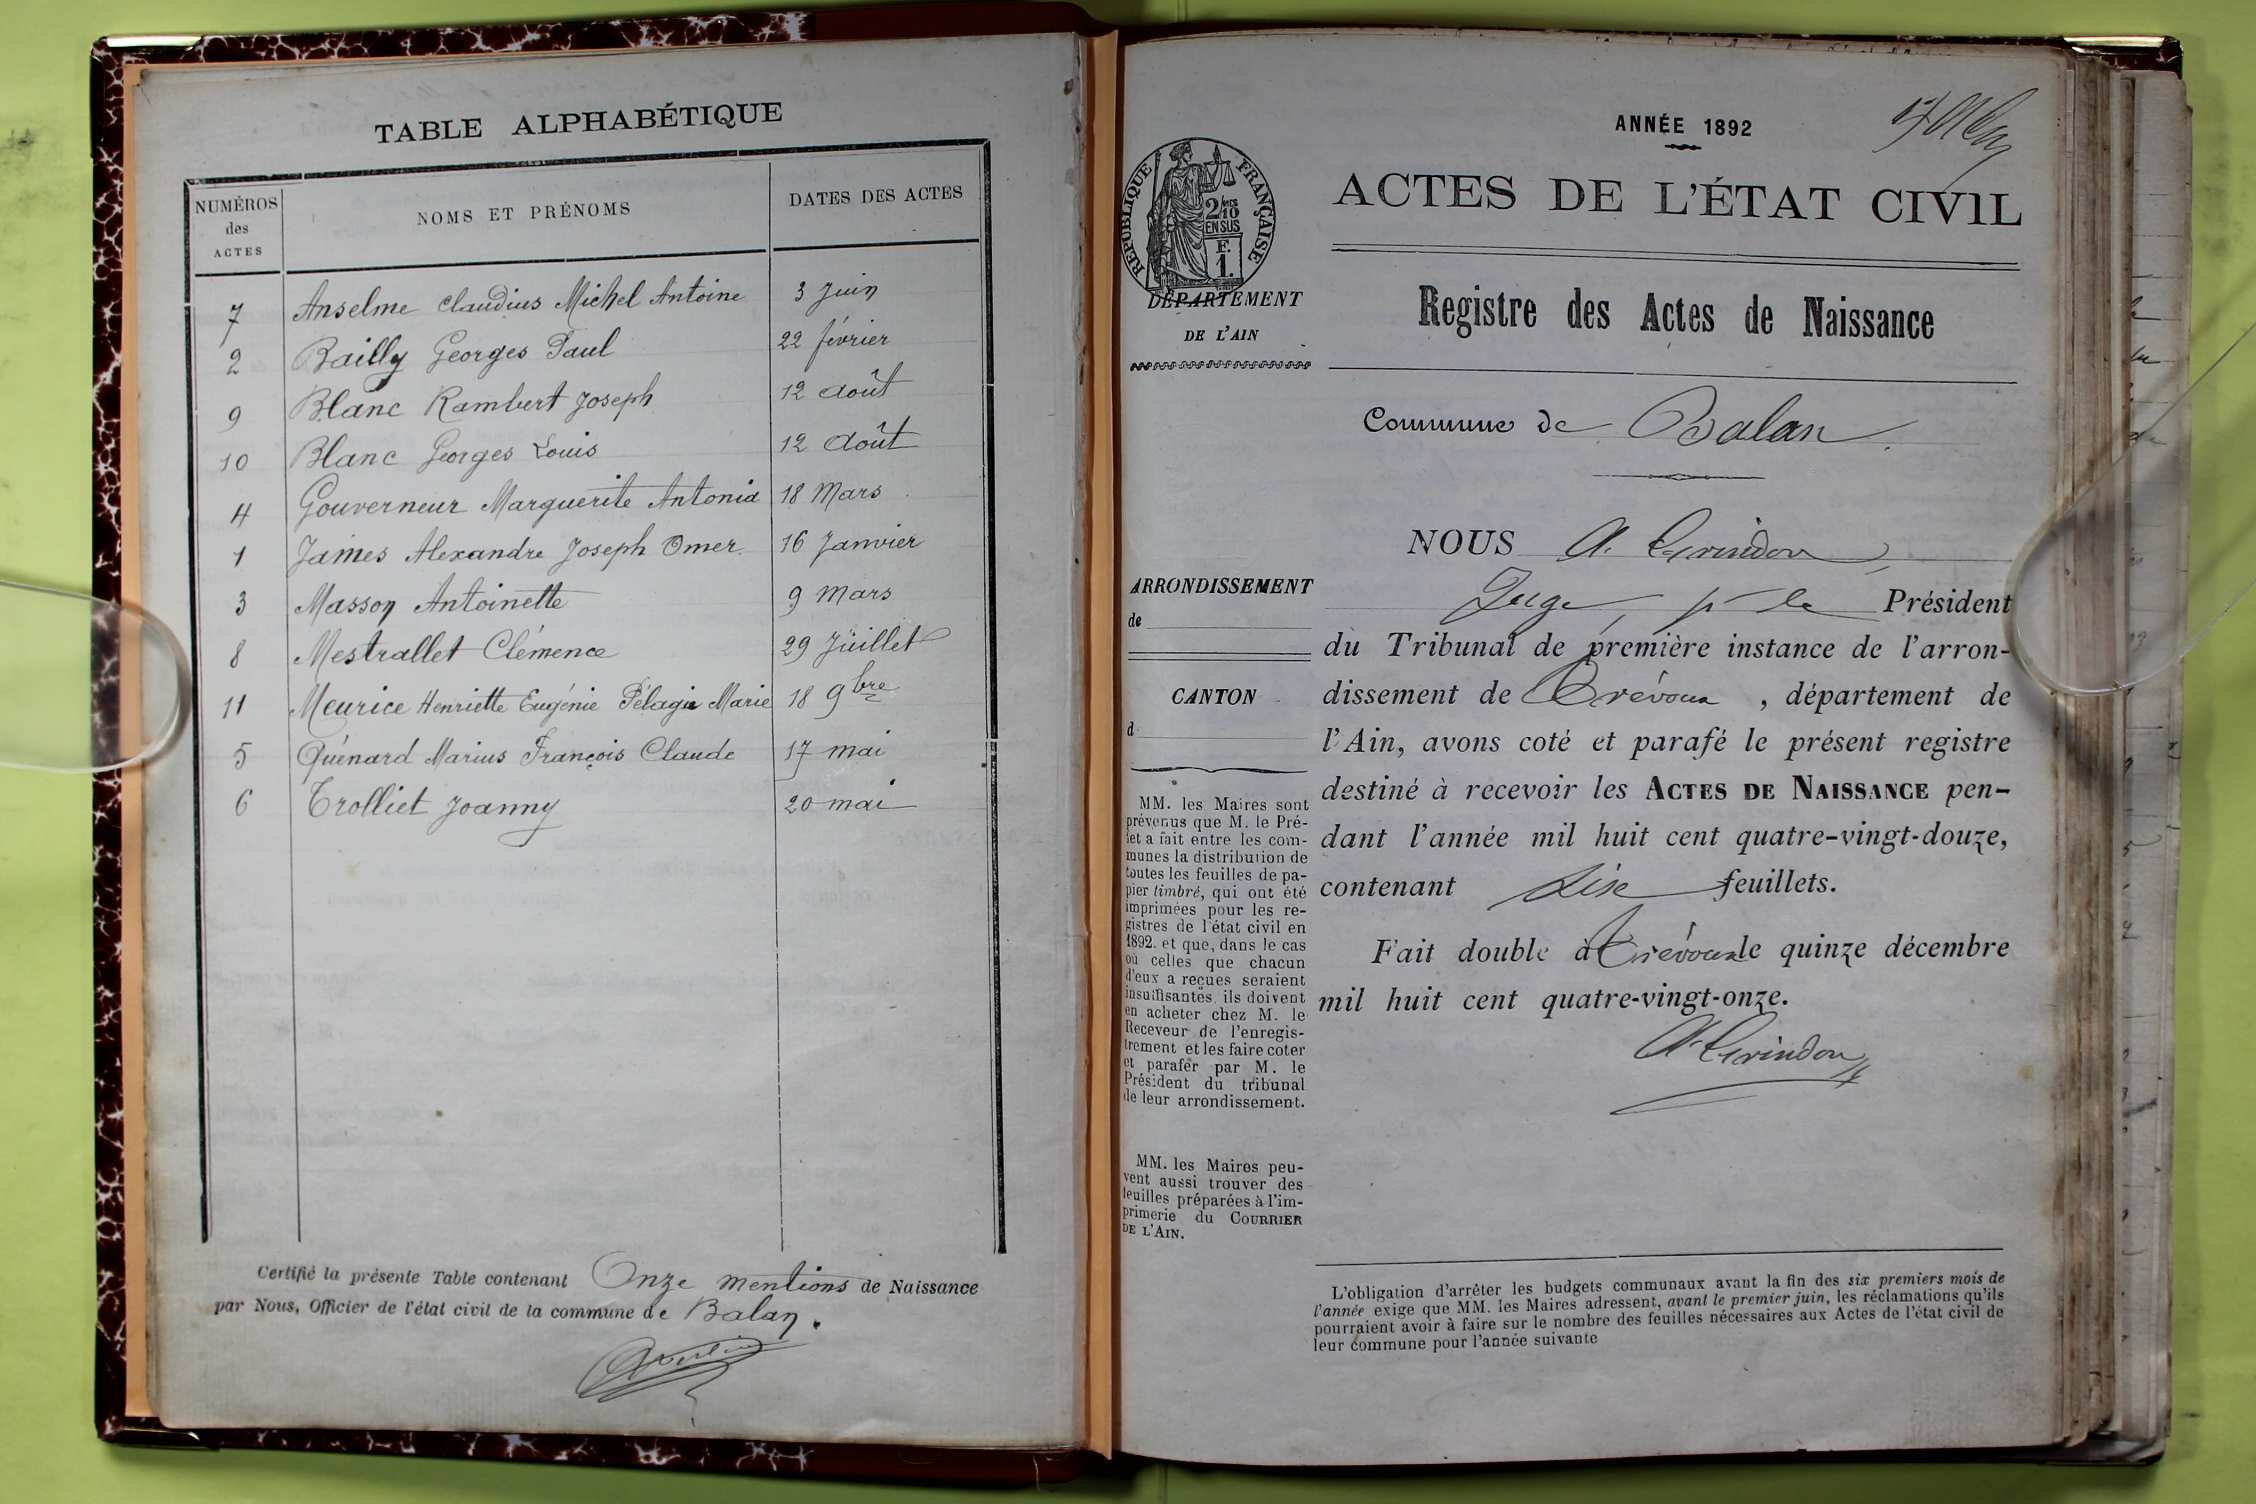 TABLE ALPHABÉTIQUE
NUMÉROS des ACTES
NOMS ET PRÉNOMS
DATES DES ACTES
7 Anselme Claudius Michel Antoine 3 Juin
2 Bailly Georges Paul 22 février
9 Blanc Rambert Joseph 12 Août
10 Blanc Georges Louis 12 Août
4 Gouverneur Marguerite Antonia 18 Mars
1 James Alexandre Joseph Omer 16 Janvier
3 Masson Antoinette 9 Mars
8 Mestrallet Clémence 29 Juillet
11 Meurice Henriette Eugénie Pélagie Marie 18 9bre
5 Quénard Marius François Claude 17 mai
6 Trolliet Joanny 20 mai
Certifié la présente Table contenant Onze mentions de Naissance
par Nous, Officier de l'état civil de la commune de Balan.
ANNÉE 1892
ACTES DE L'ÉTAT CIVIL
RÉPUBLIQUE FRANÇAISE
2/10
EN SUS
F.
1.
DÉPARTEMENT
DE L'AIN
Registre des Actes de Naissance
Commune de Balan.
ARRONDISSEMENT
de
CANTON
d
NOUS A. Grindon,
Juge, p. le Président
du Tribunal de première instance de l'arron-
dissement de Trévoux, département de
l'Ain, avons coté et parafé le présent registre
destiné à recevoir les ACTES DE NAISSANCE pen-
dant l'année mil huit cent quatre-vingt-douze,
contenant Six feuillets.
Fait double à Trévoux le quinze décembre
mil huit cent quatre-vingt-onze.
A. Grindon
MM. les Maires sont
prévenus que M. le Pré-
fet a fait entre les com-
munes la distribution de
toutes les feuilles de pa-
pier timbré, qui ont été
imprimées pour les re-
gistres de l'état civil en
1892. et que, dans le cas
où celles que chacun
d'eux a reçues seraient
insuffisantes, ils doivent
en acheter chez M. le
Receveur de l'enregis-
trement et les faire coter
et parafer par M. le
Président du tribunal
de leur arrondissement.
MM. les Maires peu-
vent aussi trouver des
feuilles préparées à l'im-
primerie du COURRIER
DE L'AIN.
L'obligation d'arrêter les budgets communaux avant la fin des six premiers mois de
l'année exige que MM. les Maires adressent, avant le premier juin, les réclamations qu'ils
pourraient avoir à faire sur le nombre des feuilles nécessaires aux Actes de l'état civil de
leur commune pour l'année suivante